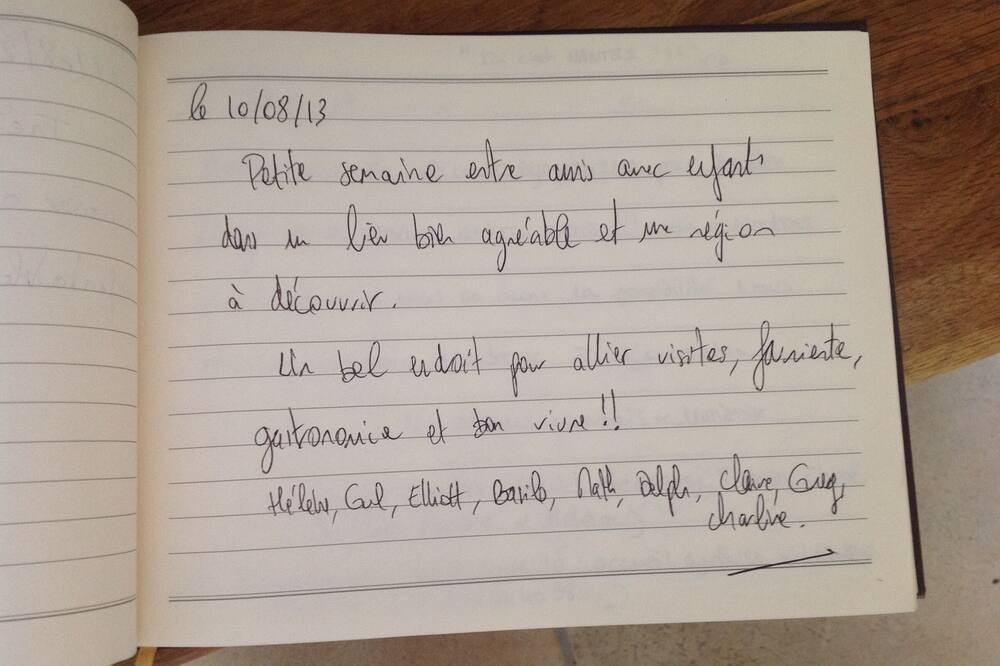 le 10/08/13
Petite semaine entre amis avec enfants
dans un lieu bien agréable et une région
à découvrir.
Un bel endroit pour allier visites, farniente,
gastronomie et bon vivre !!
Hélène, Elliott, Math, Delph, Claire, Greg,
Charline.